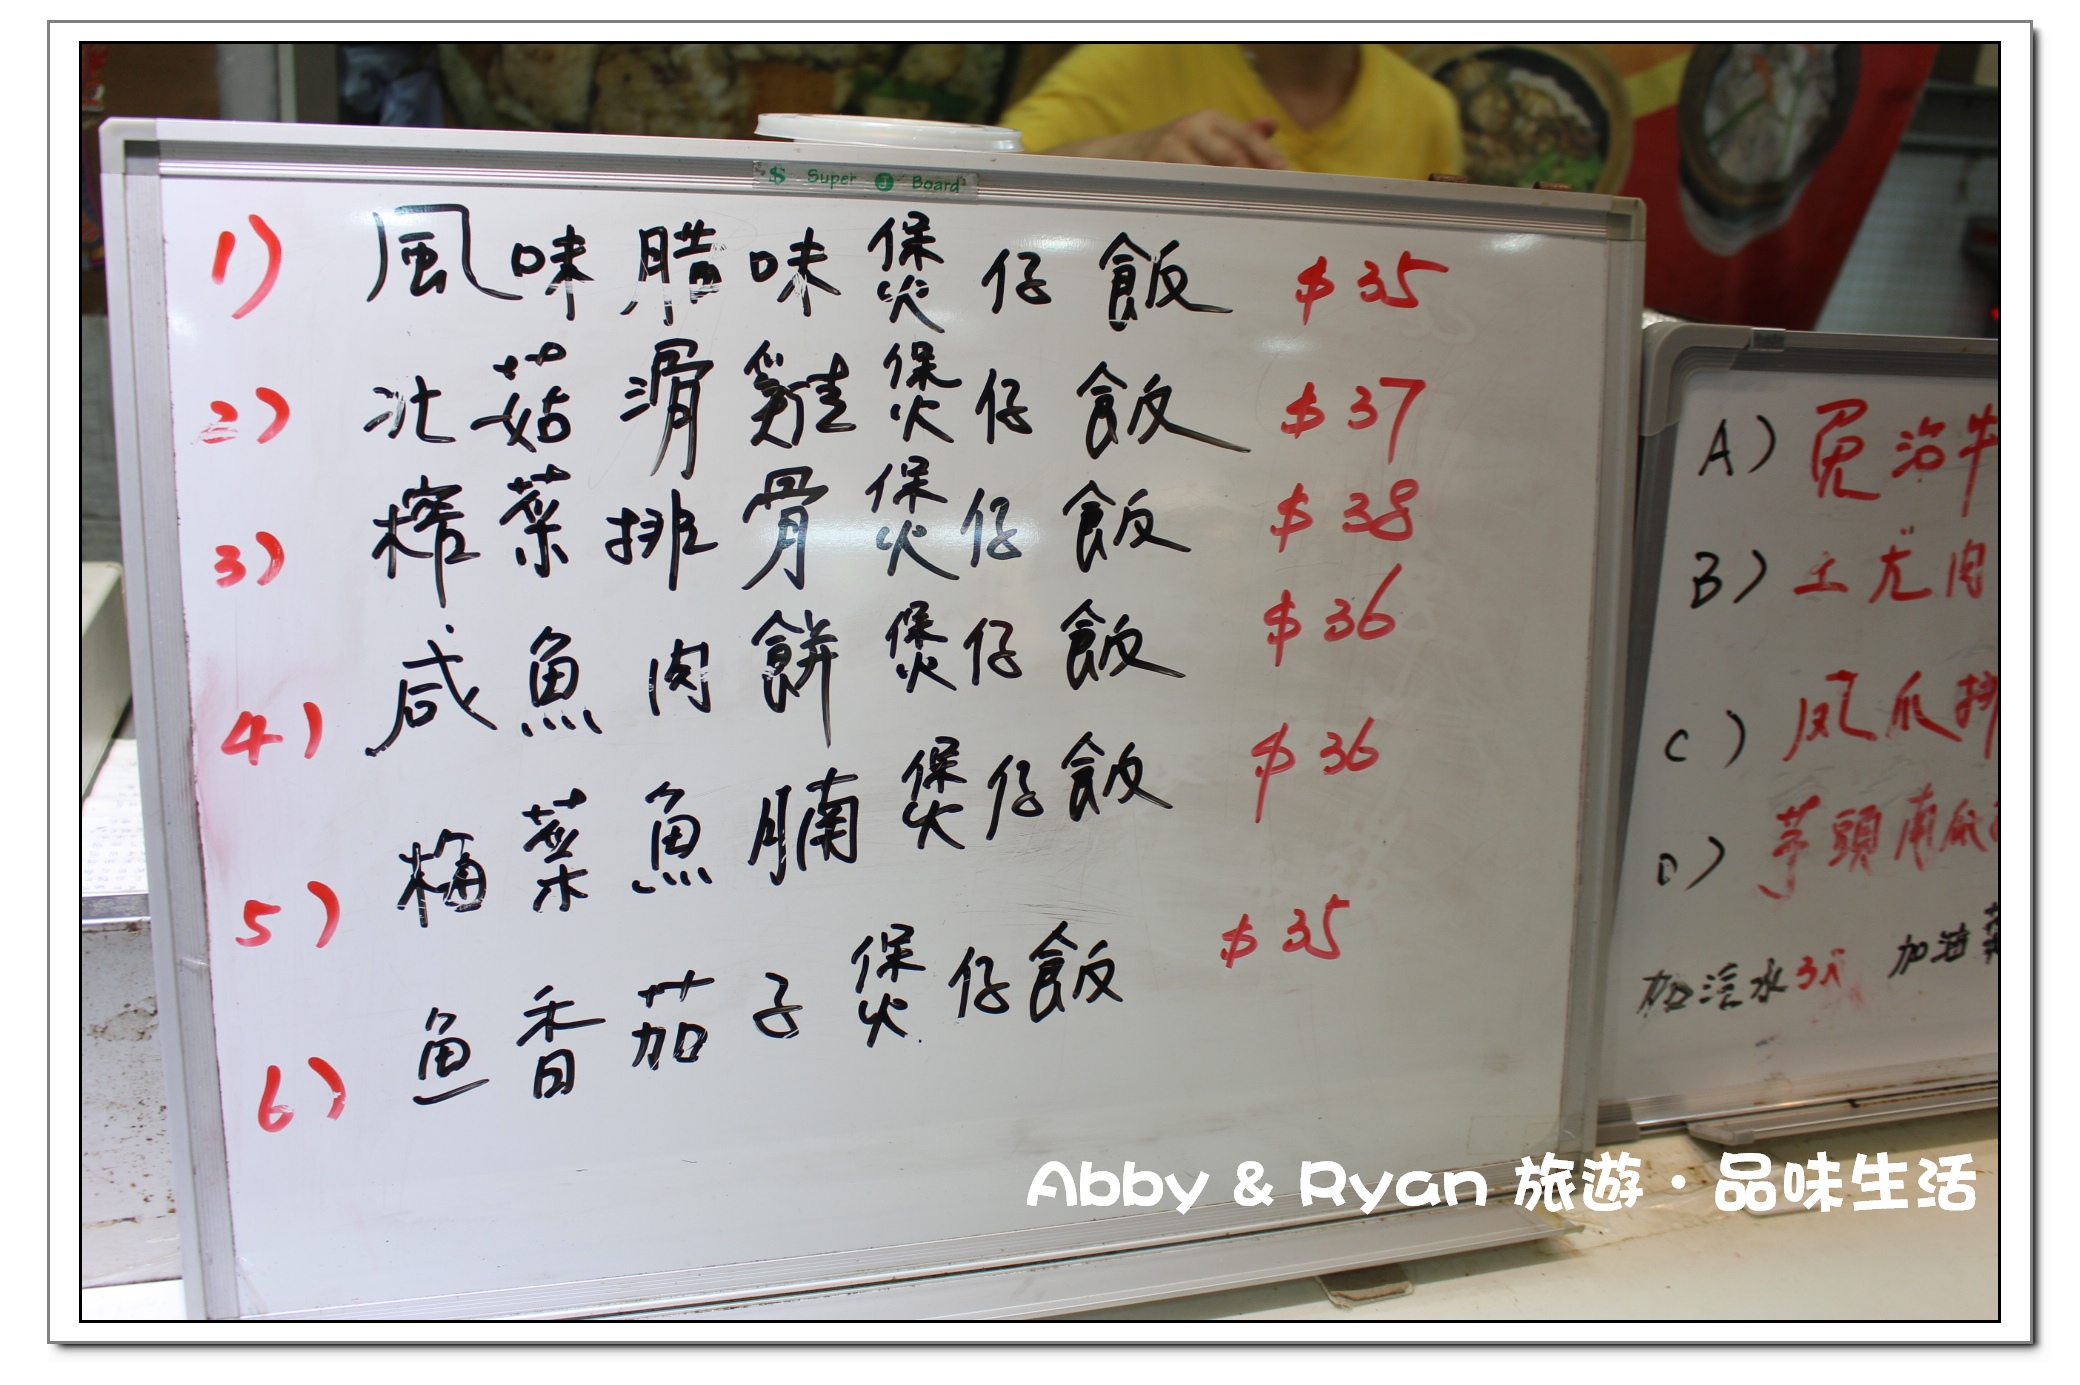 $ Super J Board
1) 風味腊味煲仔飯 $35
2) 北菇滑雞煲仔飯 $37
3) 榨菜排骨煲仔飯 $38
4) 咸魚肉餅煲仔飯 $36
5) 梅菜魚腩煲仔飯 $36
6) 魚香茄子煲仔飯 $35
A) 免治牛
B) 土尤肉
C) 凤爪排
D) 芋頭南瓜
加汽水3元 加油菜
Abby & Ryan 旅遊·品味生活